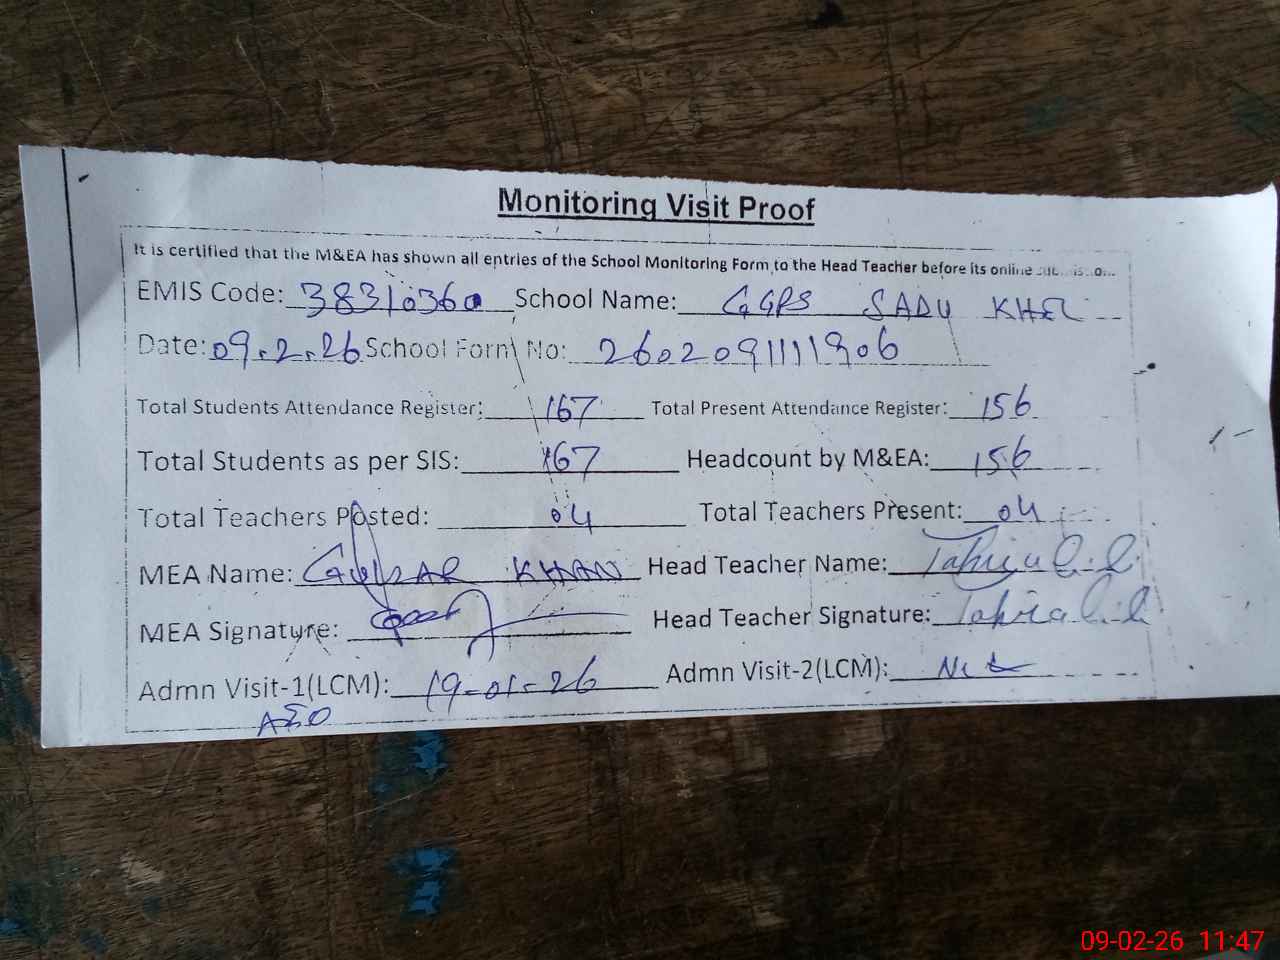 Monitoring Visit Proof
It is certified that the M&EA has shown all entries of the School Monitoring Form to the Head Teacher before its online
EMIS Code: 38310360 School Name: GGPS SADU KHEL
Date: 09.2.26 School Form No: 2602091111906
Total Students Attendance Register: 167 Total Present Attendance Register: 156
Total Students as per SIS: 167 Headcount by M&EA: 156
Total Teachers Posted: 04 Total Teachers Present: 04
MEA Name: GULZAR KHAN Head Teacher Name:
MEA Signature: Head Teacher Signature:
Admn Visit-1(LCM): 19-01-26 Admn Visit-2(LCM): Nil
AEO
09-02-26 11:47